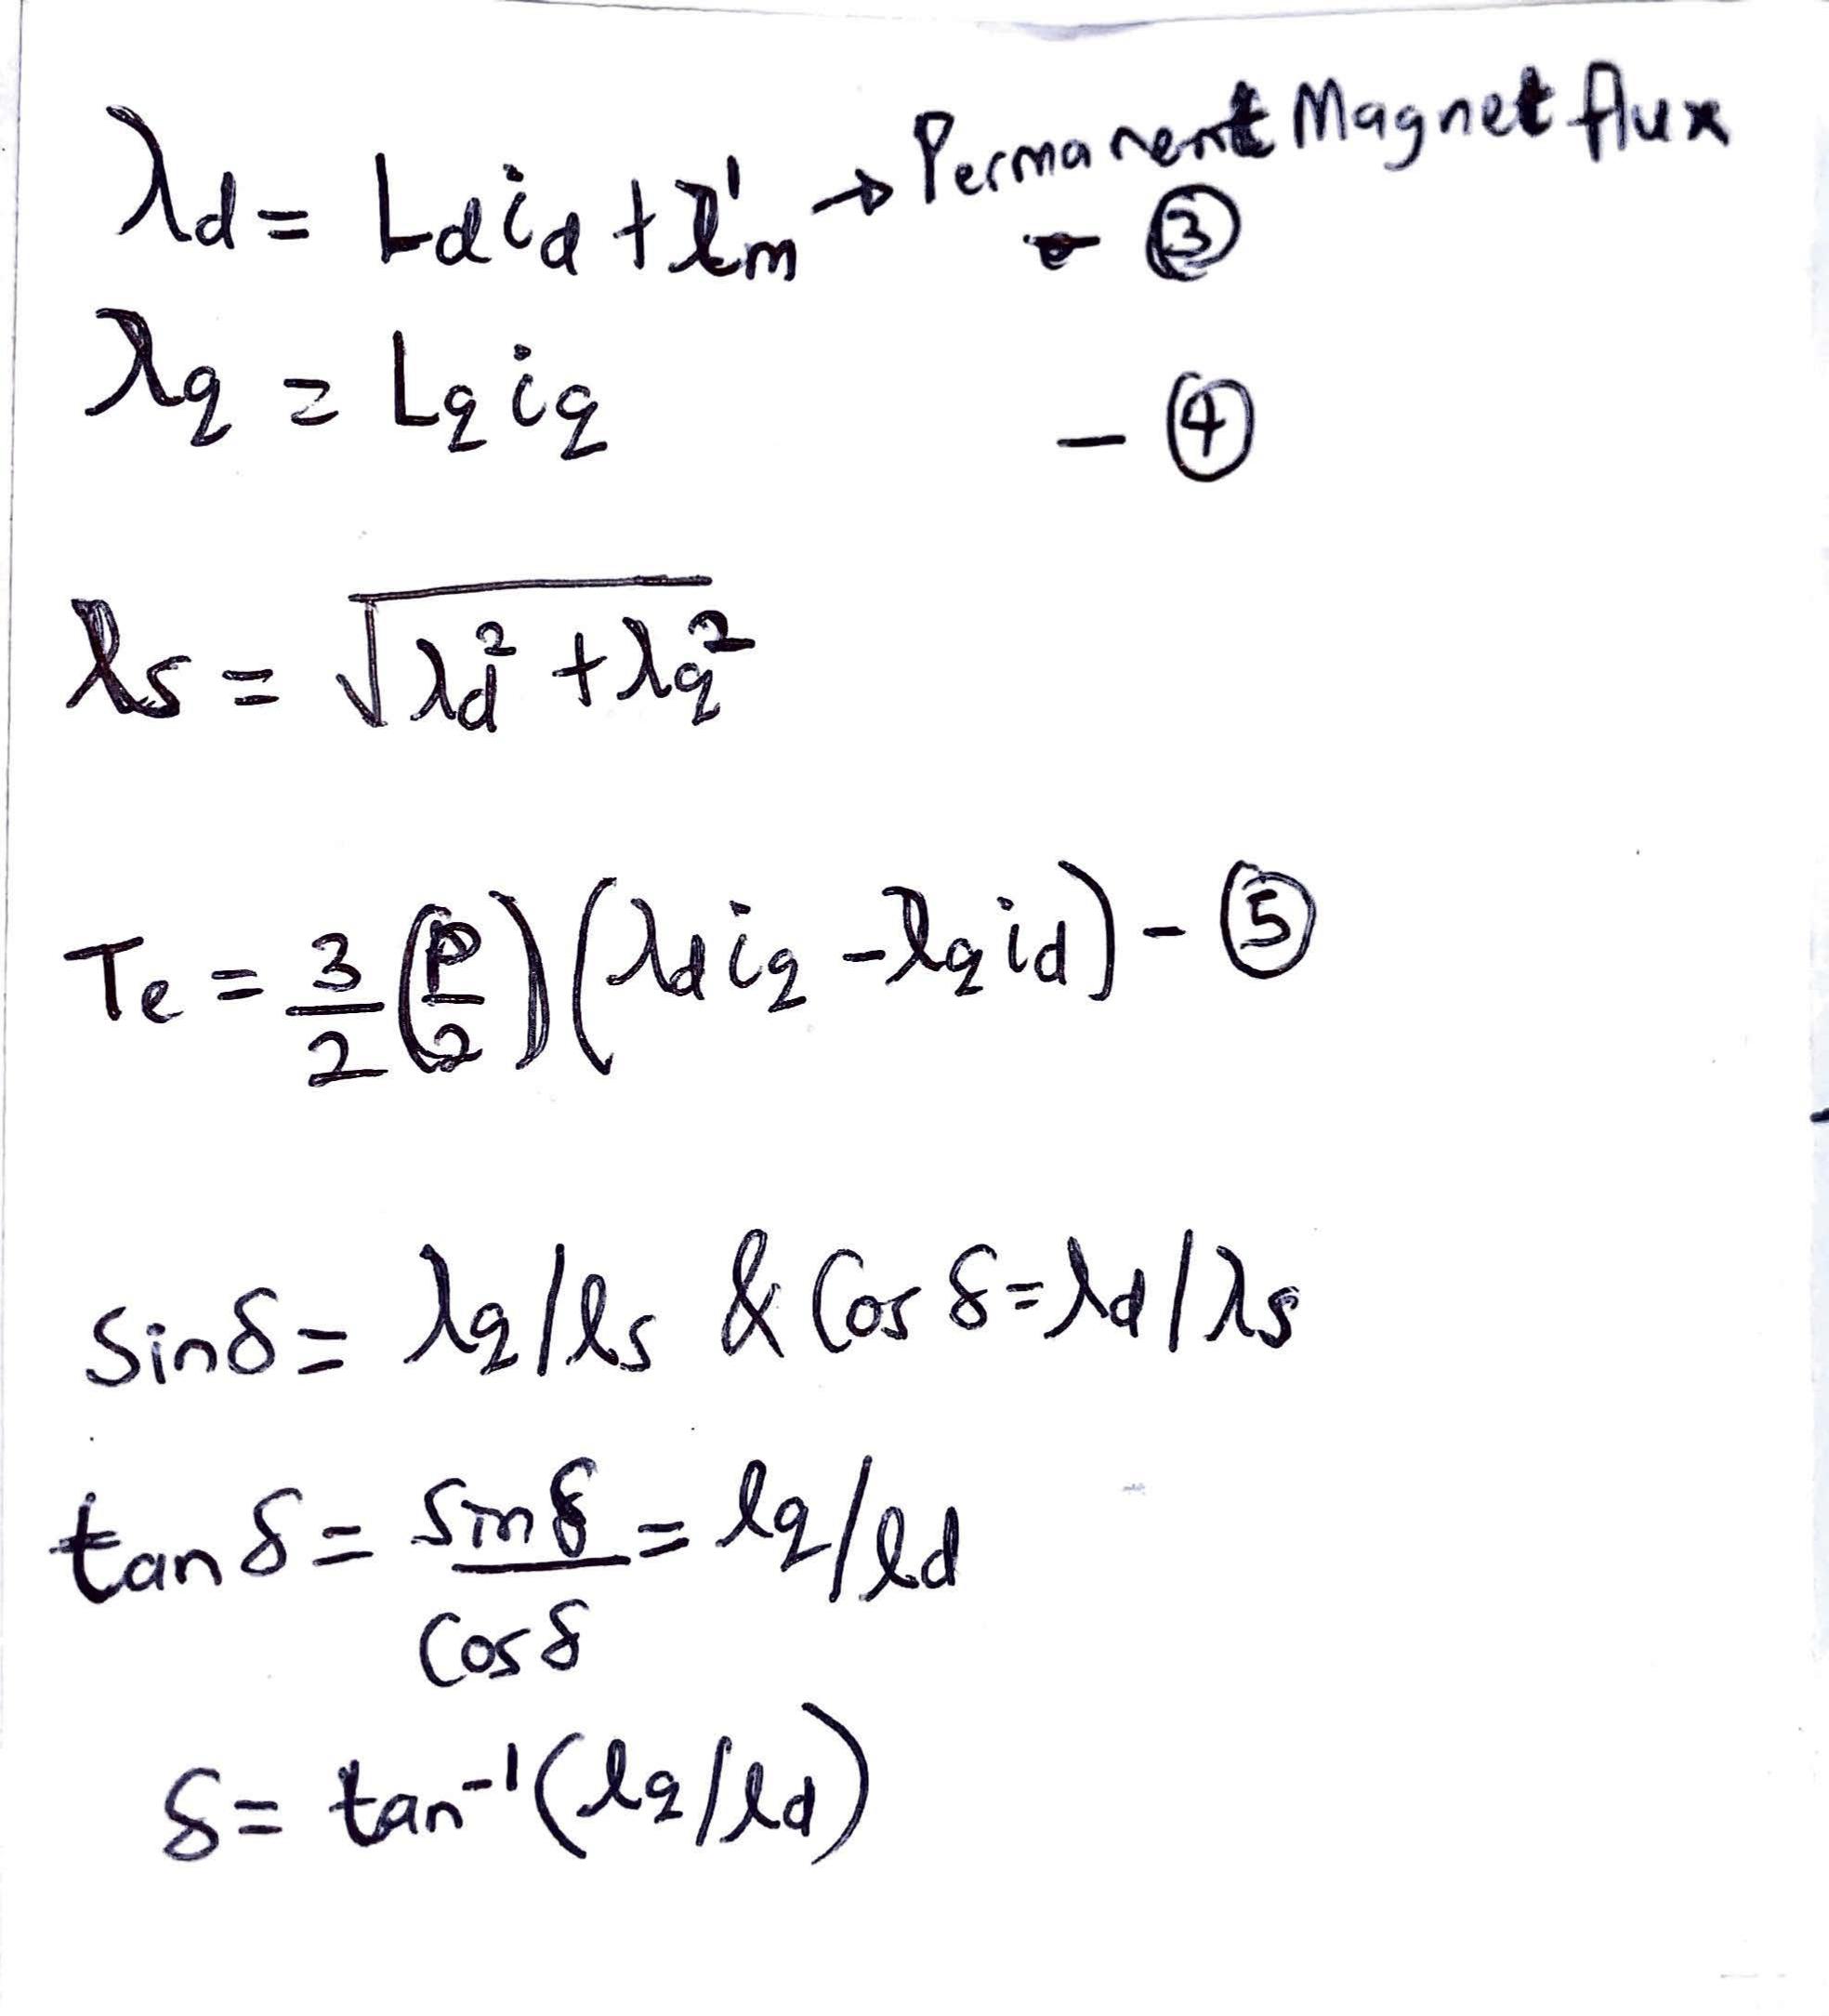 λd = Ld id + λ'm → Permanent Magnet flux
- ③
λq = Lq iq - ④
λs = √(λd² + λq²)
Te = 3/2 (P/2) (λd iq - λq id) - ⑤
Sinδ = λq/λs & Cos δ = λd/λs
tan δ = Sinδ/Cosδ = λq/λd
δ = tan⁻¹(λq/λd)